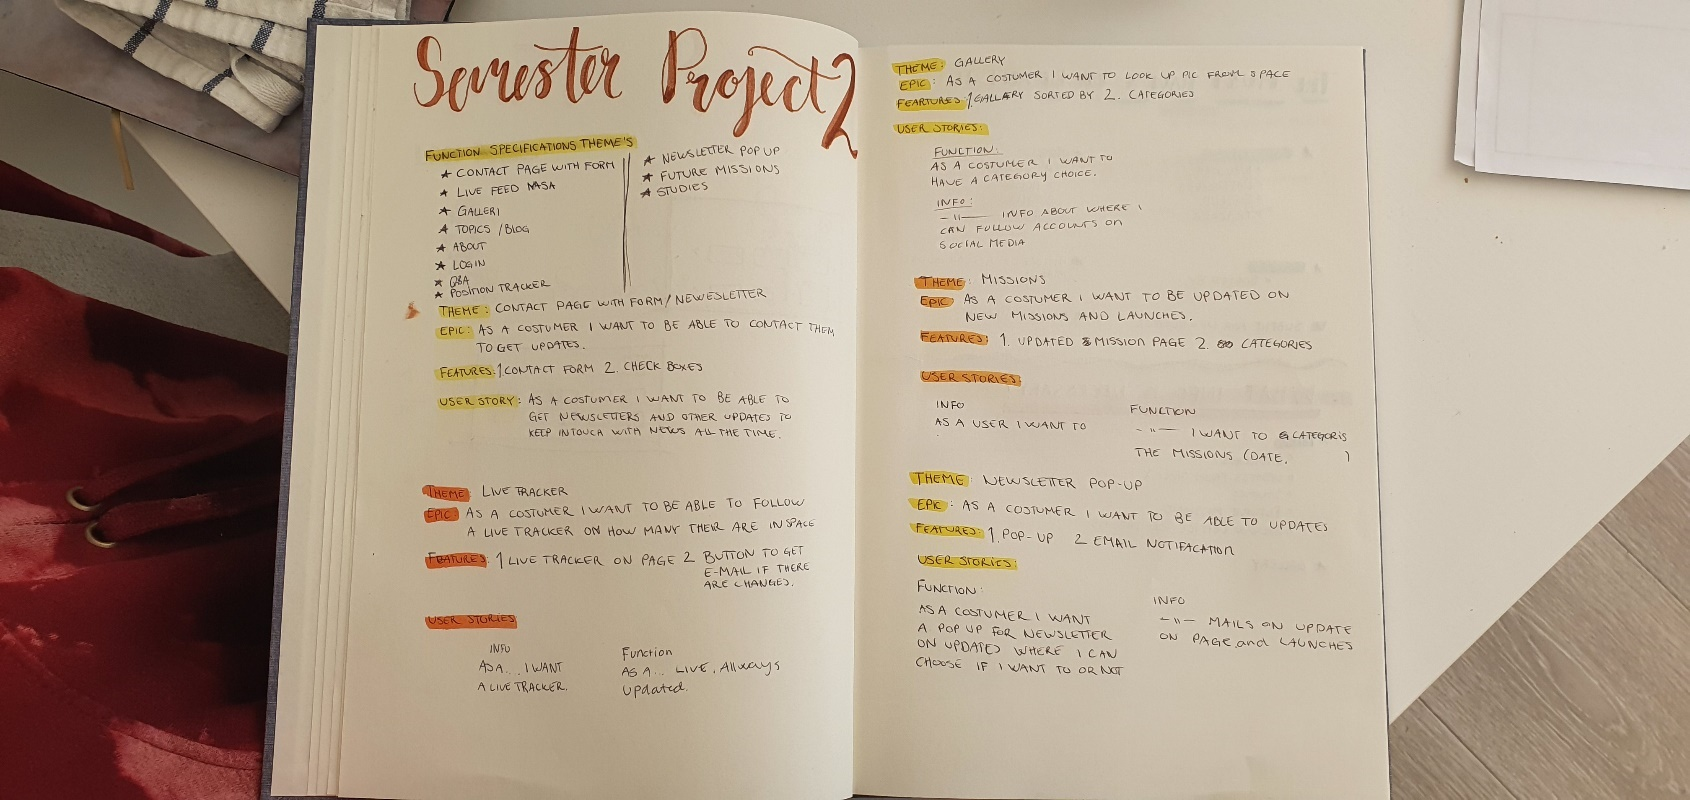 Semester Project 2
FUNCTION SPECIFICATIONS THEME'S
★ CONTACT PAGE WITH FORM
★ LIVE FEED NASA
★ GALLERI
★ TOPICS / BLOG
★ ABOUT
★ LOGIN
★ Q&A
★ POSITION TRACKER
★ NEWSLETTER POP UP
★ FUTURE MISSIONS
★ STUDIES
THEME: CONTACT PAGE WITH FORM / NEWESLETTER
EPIC: AS A COSTUMER I WANT TO BE ABLE TO CONTACT THEM
TO GET UPDATES.
FEATURES: 1 CONTACT FORM 2. CHECK BOXES
USER STORY: AS A COSTUMER I WANT TO BE ABLE TO
GET NEWSLETTERS AND OTHER UPDATES TO
KEEP IN TOUCH WITH NEWS ALL THE TIME.
THEME: LIVE TRACKER
EPIC: AS A COSTUMER I WANT TO BE ABLE TO FOLLOW
A LIVE TRACKER ON HOW MANY THEIR ARE IN SPACE
FEATURES: 1 LIVE TRACKER ON PAGE 2 BUTTON TO GET
E-MAIL IF THERE
ARE CHANGES.
USER STORIES
INFO
AS A... I WANT
A LIVE TRACKER.
Function
AS A... LIVE, Allways
updated.
THEME: GALLERY
EPIC: AS A COSTUMER I WANT TO LOOK UP PIC FROM SPACE
FEARTURES 1. GALLARY SORTED BY 2. CATEGORIES
USER STORIES:
FUNCTION:
AS A COSTUMER I WANT TO
HAVE A CATEGORY CHOICE.
INFO:
–"–– INFO ABOUT WHERE I
CAN FOLLOW ACCOUNTS ON
SOCIAL MEDIA
THEME: MISSIONS
EPIC: AS A COSTUMER I WANT TO BE UPDATED ON
NEW MISSIONS AND LAUNCHES.
FEATURES: 1. UPDATED MISSION PAGE 2. CATEGORIES
USER STORIES:
INFO
AS A USER I WANT TO
FUNCTION
–"–– I WANT TO CATEGORIS
THE MISSIONS (DATE, )
THEME: NEWSLETTER POP-UP
EPIC: AS A COSTUMER I WANT TO BE ABLE TO UPDATES
FEATURES: 1. POP-UP 2 EMAIL NOTIFACATION
USER STORIES:
FUNCTION:
AS A COSTUMER I WANT
A POP UP FOR NEWSLETTER
ON UPDATES WHERE I CAN
CHOOSE IF I WANT TO OR NOT
INFO
–"– MAILS ON UPDATE
ON PAGE and LAUNCHES